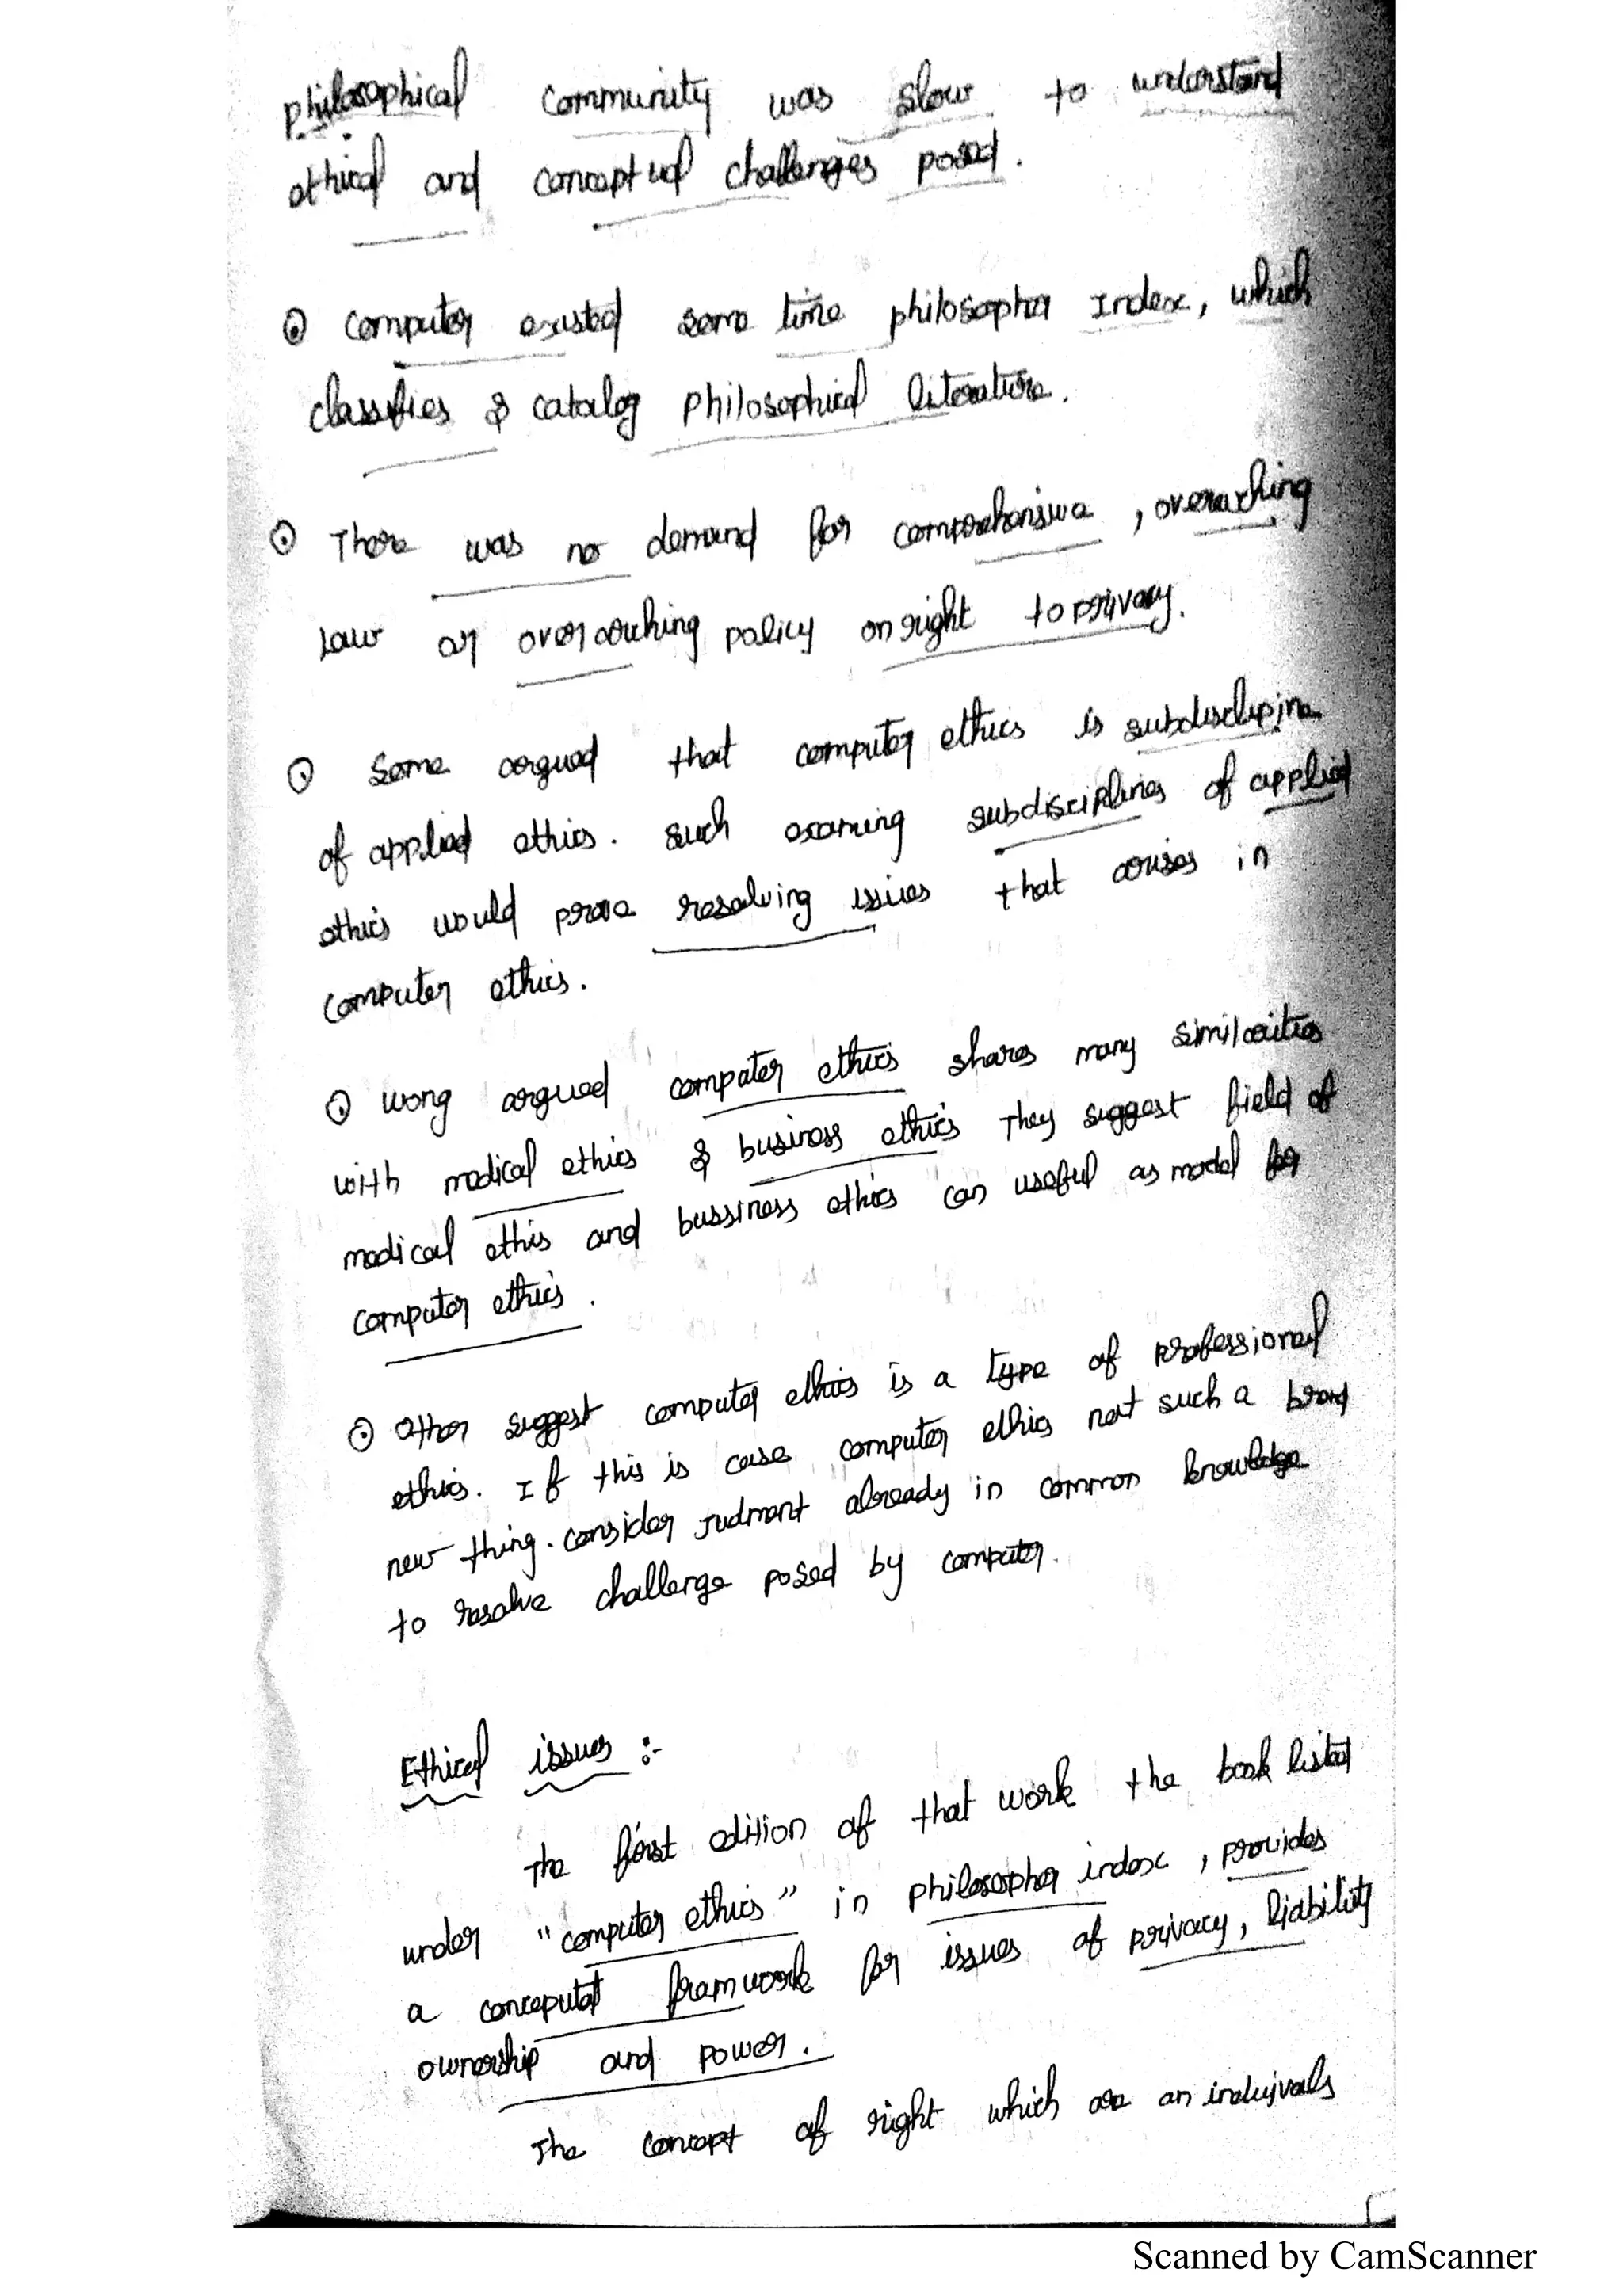 philosophical community was slow to understand
ethical and conceptual challenges posed.
computer existed some time philosopher Index, which
classifies & catalog philosophical literature.
There was no demand for comprehensive, overaching
law or overarching policy on right to privacy.
Some argued that computer ethics is subdisclipine
of applied ethics. Such examing subdisciplines of applied
ethics would prove resolving issues that arises in
computer ethics.
wong argued computer ethics shares many similarities
with medical ethics & business ethics They suggest field of
medical ethis and bussiness ethics can useful as model for
computer ethics.
Other suggest computer ethics is a type of professional
ethics. If this is case computer ethics not such a brand
new thing. consider Judment already in common knowledge
to resolve challenge posed by computer.
Ethical issues :-
The first edition of that work the book listed
under "computer ethics" in philosopher index, provides
a conceputal framwork for issues of privacy, liability
ownership and power.
The concept of right which are an
Scanned by CamScanner